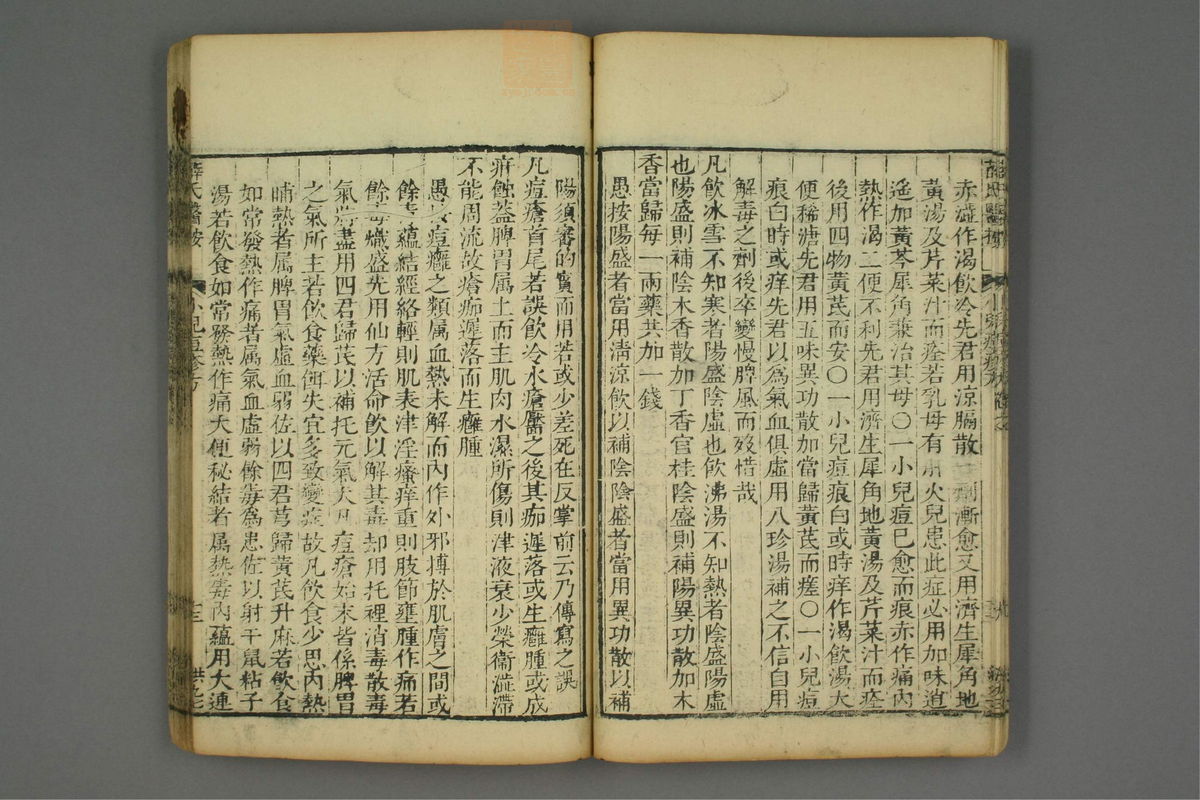 赤澁作渴飲冷先君用涼膈散一劑漸愈又用濟生犀角地
黃湯及芹菜汁而痊若乳母有火兒患此症必用加味逍
遙加黃芩犀角兼治其母〇一小兒痘已愈而痕赤作痛內
熱作渴二便不利先君用濟生犀角地黃湯及芹菜汁而痊
後用四物黃芪而安〇一小兒痘痕白或時痒作渴飲湯大
便稀溏先君用五味異功散加當歸黃芪而瘥〇一小兒痘
痕白時或痒先君以爲氣血俱虛用八珍湯補之不信自用
解毒之劑後卒變慢脾風而歿惜哉
凡飲冰雪不知寒者陽盛陰虛也飲沸湯不知熱者陰盛陽虛
也陽盛則補陰木香散加丁香官桂陰盛則補陽異功散加木
香當歸每一兩藥共加一錢
愚按陽盛者當用清涼飲以補陰陰盛者當用異功散以補
陽須審的實而用若或少差死在反掌前云乃傳寫之誤
凡痘瘡首尾若誤飲冷水瘡靨之後其痂遲落或生癰腫或成
疳蝕蓋脾胃属土而主肌肉水濕所傷則津液衰少榮衛澁滯
不能周流故瘡痂遲落而生癰腫
愚按痘癰之類属血熱未解而內作外邪搏於肌膚之間或
餘毒蘊結經絡輕則肌表津淫瘙痒重則肢節壅腫作痛若
餘毒熾盛先用仙方活命飲以解其毒却用托裡消毒散毒
氣旣盡用四君歸芪以補托元氣大凡痘瘡始末皆係脾胃
之氣所主若飲食藥餌失宜多致變症故凡飲食少思內熱
晡熱者属脾胃氣虛血弱佐以四君芎歸黃芪升麻若飲食
如常發熱作痛者属氣血虛弱餘毒爲患佐以射干鼠粘子
湯若飲食如常發熱作痛大便秘結者属熱毒內蘊用大連
薛氏醫按
小兒痘疹方
十三